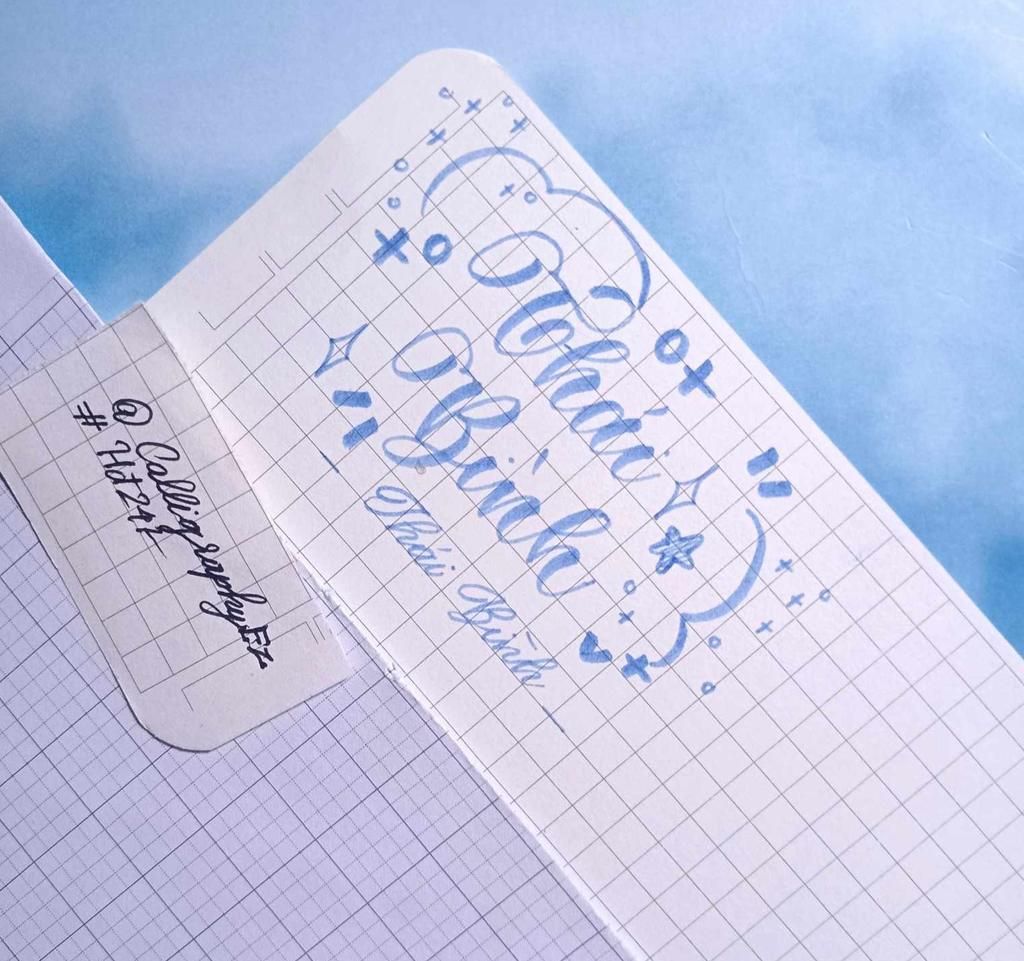 Thái
Bình
Thái Bình
@ CalligraphyEz